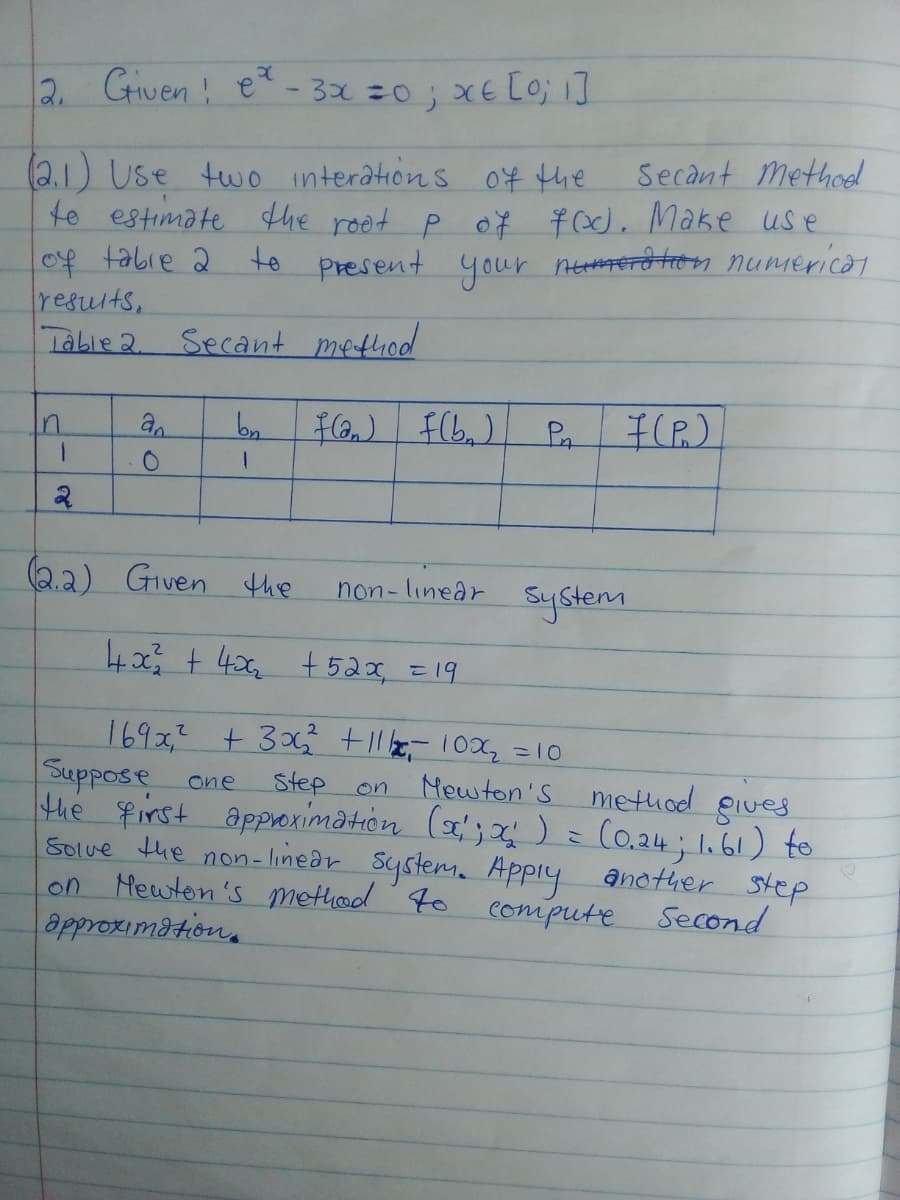 2. Given! e^x - 3x = 0 ; x ∈ [0; 1]
(2.1) Use two interations of the Secant Method
to estimate the root P of f(x). Make use
of table 2 to present your numeration numerical
results.
Table 2. Secant method
n aₙ bₙ f(aₙ) f(bₙ) Pₙ f(Pₙ)
1 0 1
2
(2.2) Given the non-linear system
4x₂² + 4x₂ + 52x₁ = 19
169x₁² + 3x₂² + 111x₁ - 10x₂ = 10
Suppose one step on Newton's method gives
the first approximation (x₁'; x₂') = (0.24; 1.61) to
Solve the non-linear system. Apply another step
on Newton's method to compute Second
approximation.